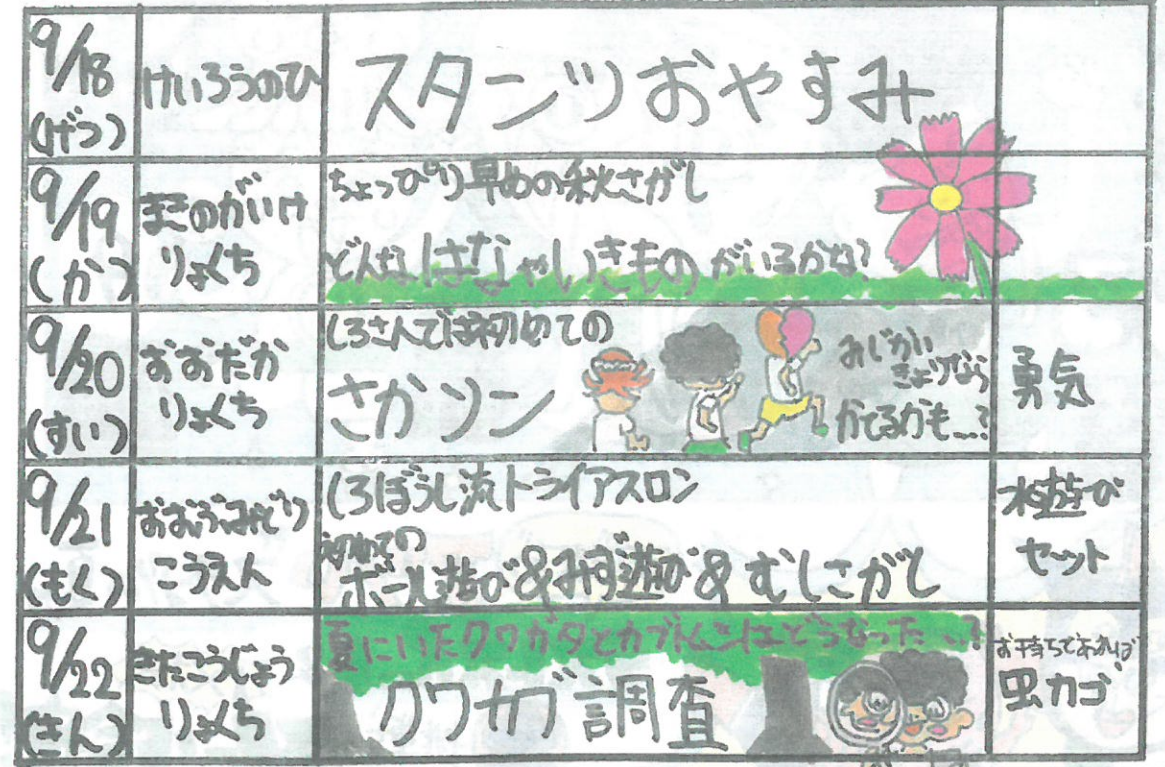 9/18
(げつ)
けいろうのひ
スタンツおやすみ
9/19
(か)
まきのがいけ
りょくち
ちょっぴり早めの秋さがし
どんなはなやいきものがいるかな?
9/20
(すい)
おおだか
りょくち
しろさんでは初めての
さかソン
みじかい
きょりなら
かてるかも...?
勇気
9/21
(もく)
おおぶみどり
こうえん
しろぼうし流トライアスロン
初めての
ボール遊び&みず遊び&むしさがし
水遊び
セット
9/22
(きん)
きたこうじょう
りょくち
夏にいたクワガタとカブトムシはどうなった...?
クワカブ調査
お持ちであれば
虫カゴ